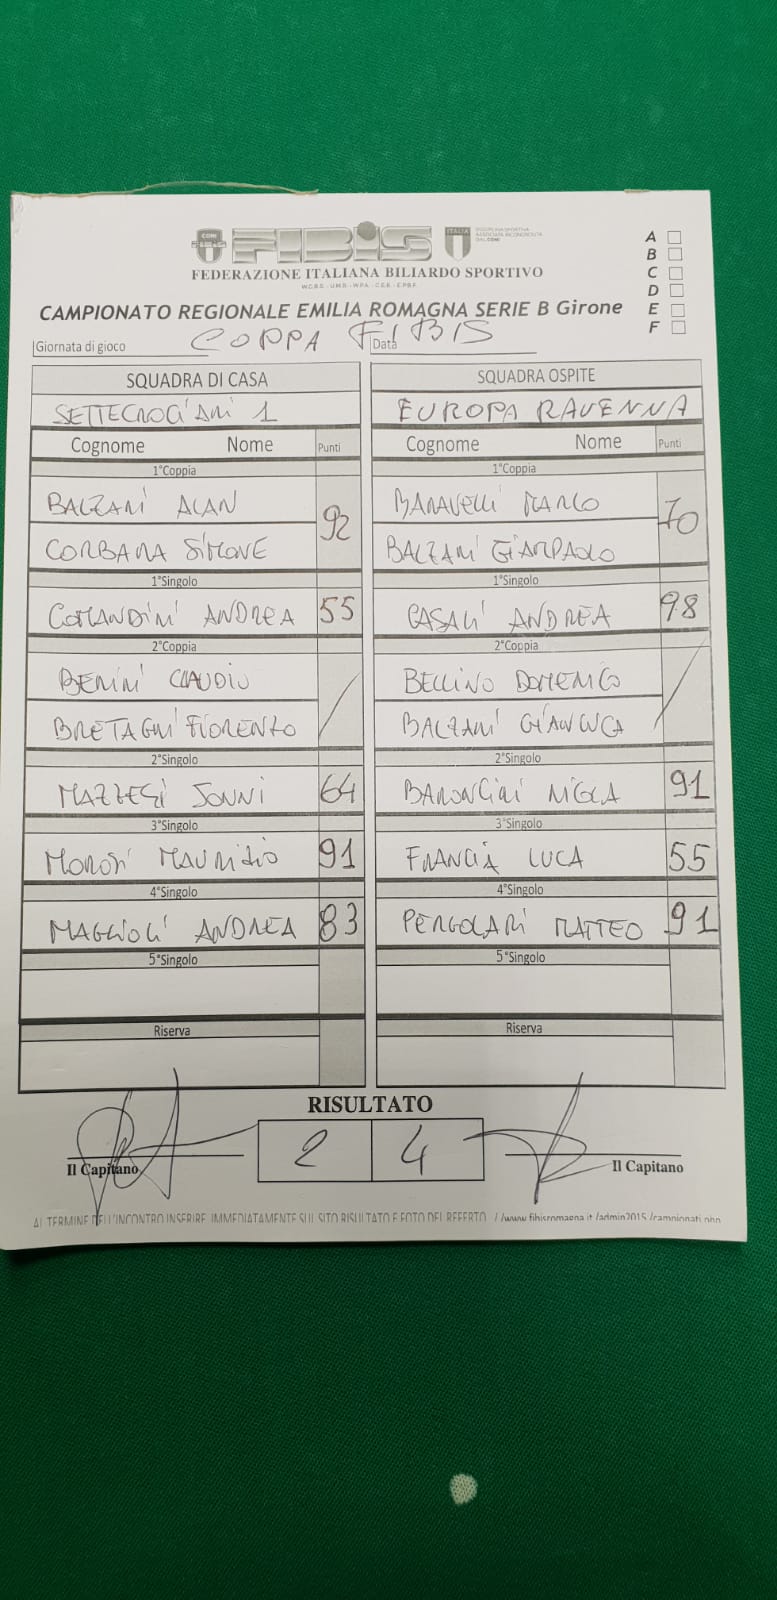 CONI
FIBIS
ITALIA
FEDERAZIONE ITALIANA BILIARDO SPORTIVO
CAMPIONATO REGIONALE EMILIA ROMAGNA SERIE B Girone
A
B
C
D
E
F
Giornata di gioco COPPA FIBIS Data
SQUADRA DI CASA
SETTECROCIARI 1
Cognome Nome Punti
1°Coppia
BALZANI ALAN
92
CORBARA SIMONE
1°Singolo
COMANDINI ANDREA 55
2°Coppia
BENINI CLAUDIO
/
BRETAGNI FIORENZO
2°Singolo
MAZZESI JONNI 64
3°Singolo
MOROSI MAURIZIO 91
4°Singolo
MAGGIOLI ANDREA 83
5°Singolo
Riserva
SQUADRA OSPITE
EUROPA RAVENNA
Cognome Nome Punti
1°Coppia
BARAVELLI MARCO
70
BALZANI GIAMPAOLO
1°Singolo
CASALI ANDREA 98
2°Coppia
BELLINO DOMENICO
/
BALZANI GIANLUCA
2°Singolo
BARONCINI NICOLA 91
3°Singolo
FRANCIA LUCA 55
4°Singolo
PERGOLARI MATTEO 91
5°Singolo
Riserva
RISULTATO
2 4
Il Capitano Il Capitano
AL TERMINE DELL'INCONTRO INSERIRE IMMEDIATAMENTE SUL SITO RISULTATO E FOTO DEL REFERTO //www.fibisromagna.it/admin2015/campionati.php